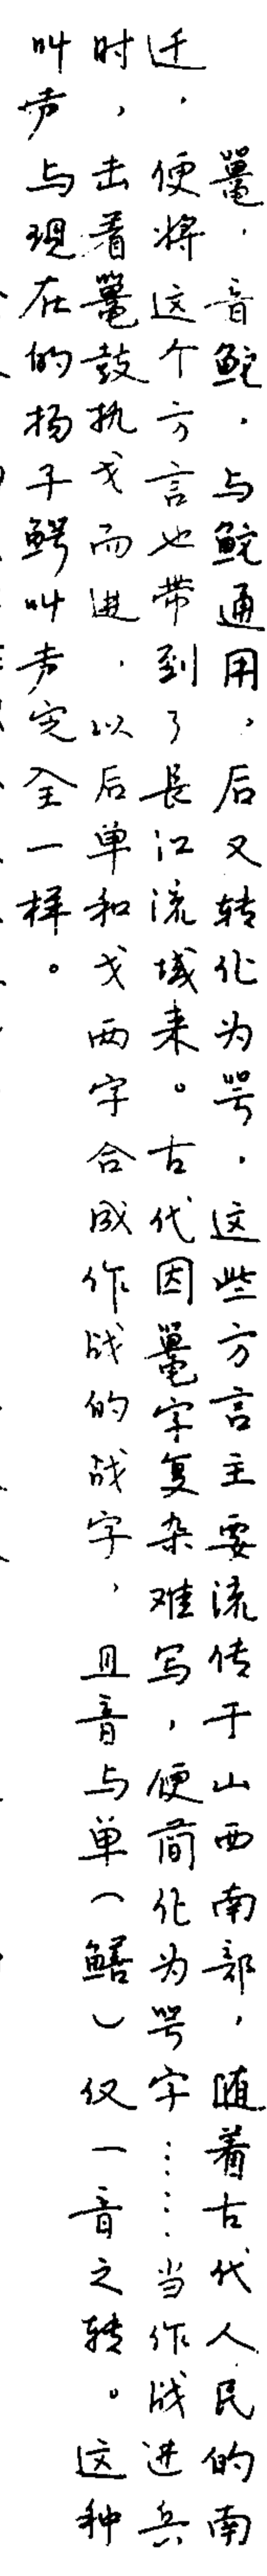 鼍，音鮀，与鮀通用，后又转化为咢，这些方言主要流传于山西南部，随着古代人民的南
迁，便将这个方言也带到了長江流域来。古代因鼍字复杂难写，便简化为咢字……当作战进兵
时，击着鼍鼓执戈而进，以后单和戈两字合成作战的战字，且音与单（鱔）仅一音之转。这种
叫声与現在的扬子鳄叫声完全一样。